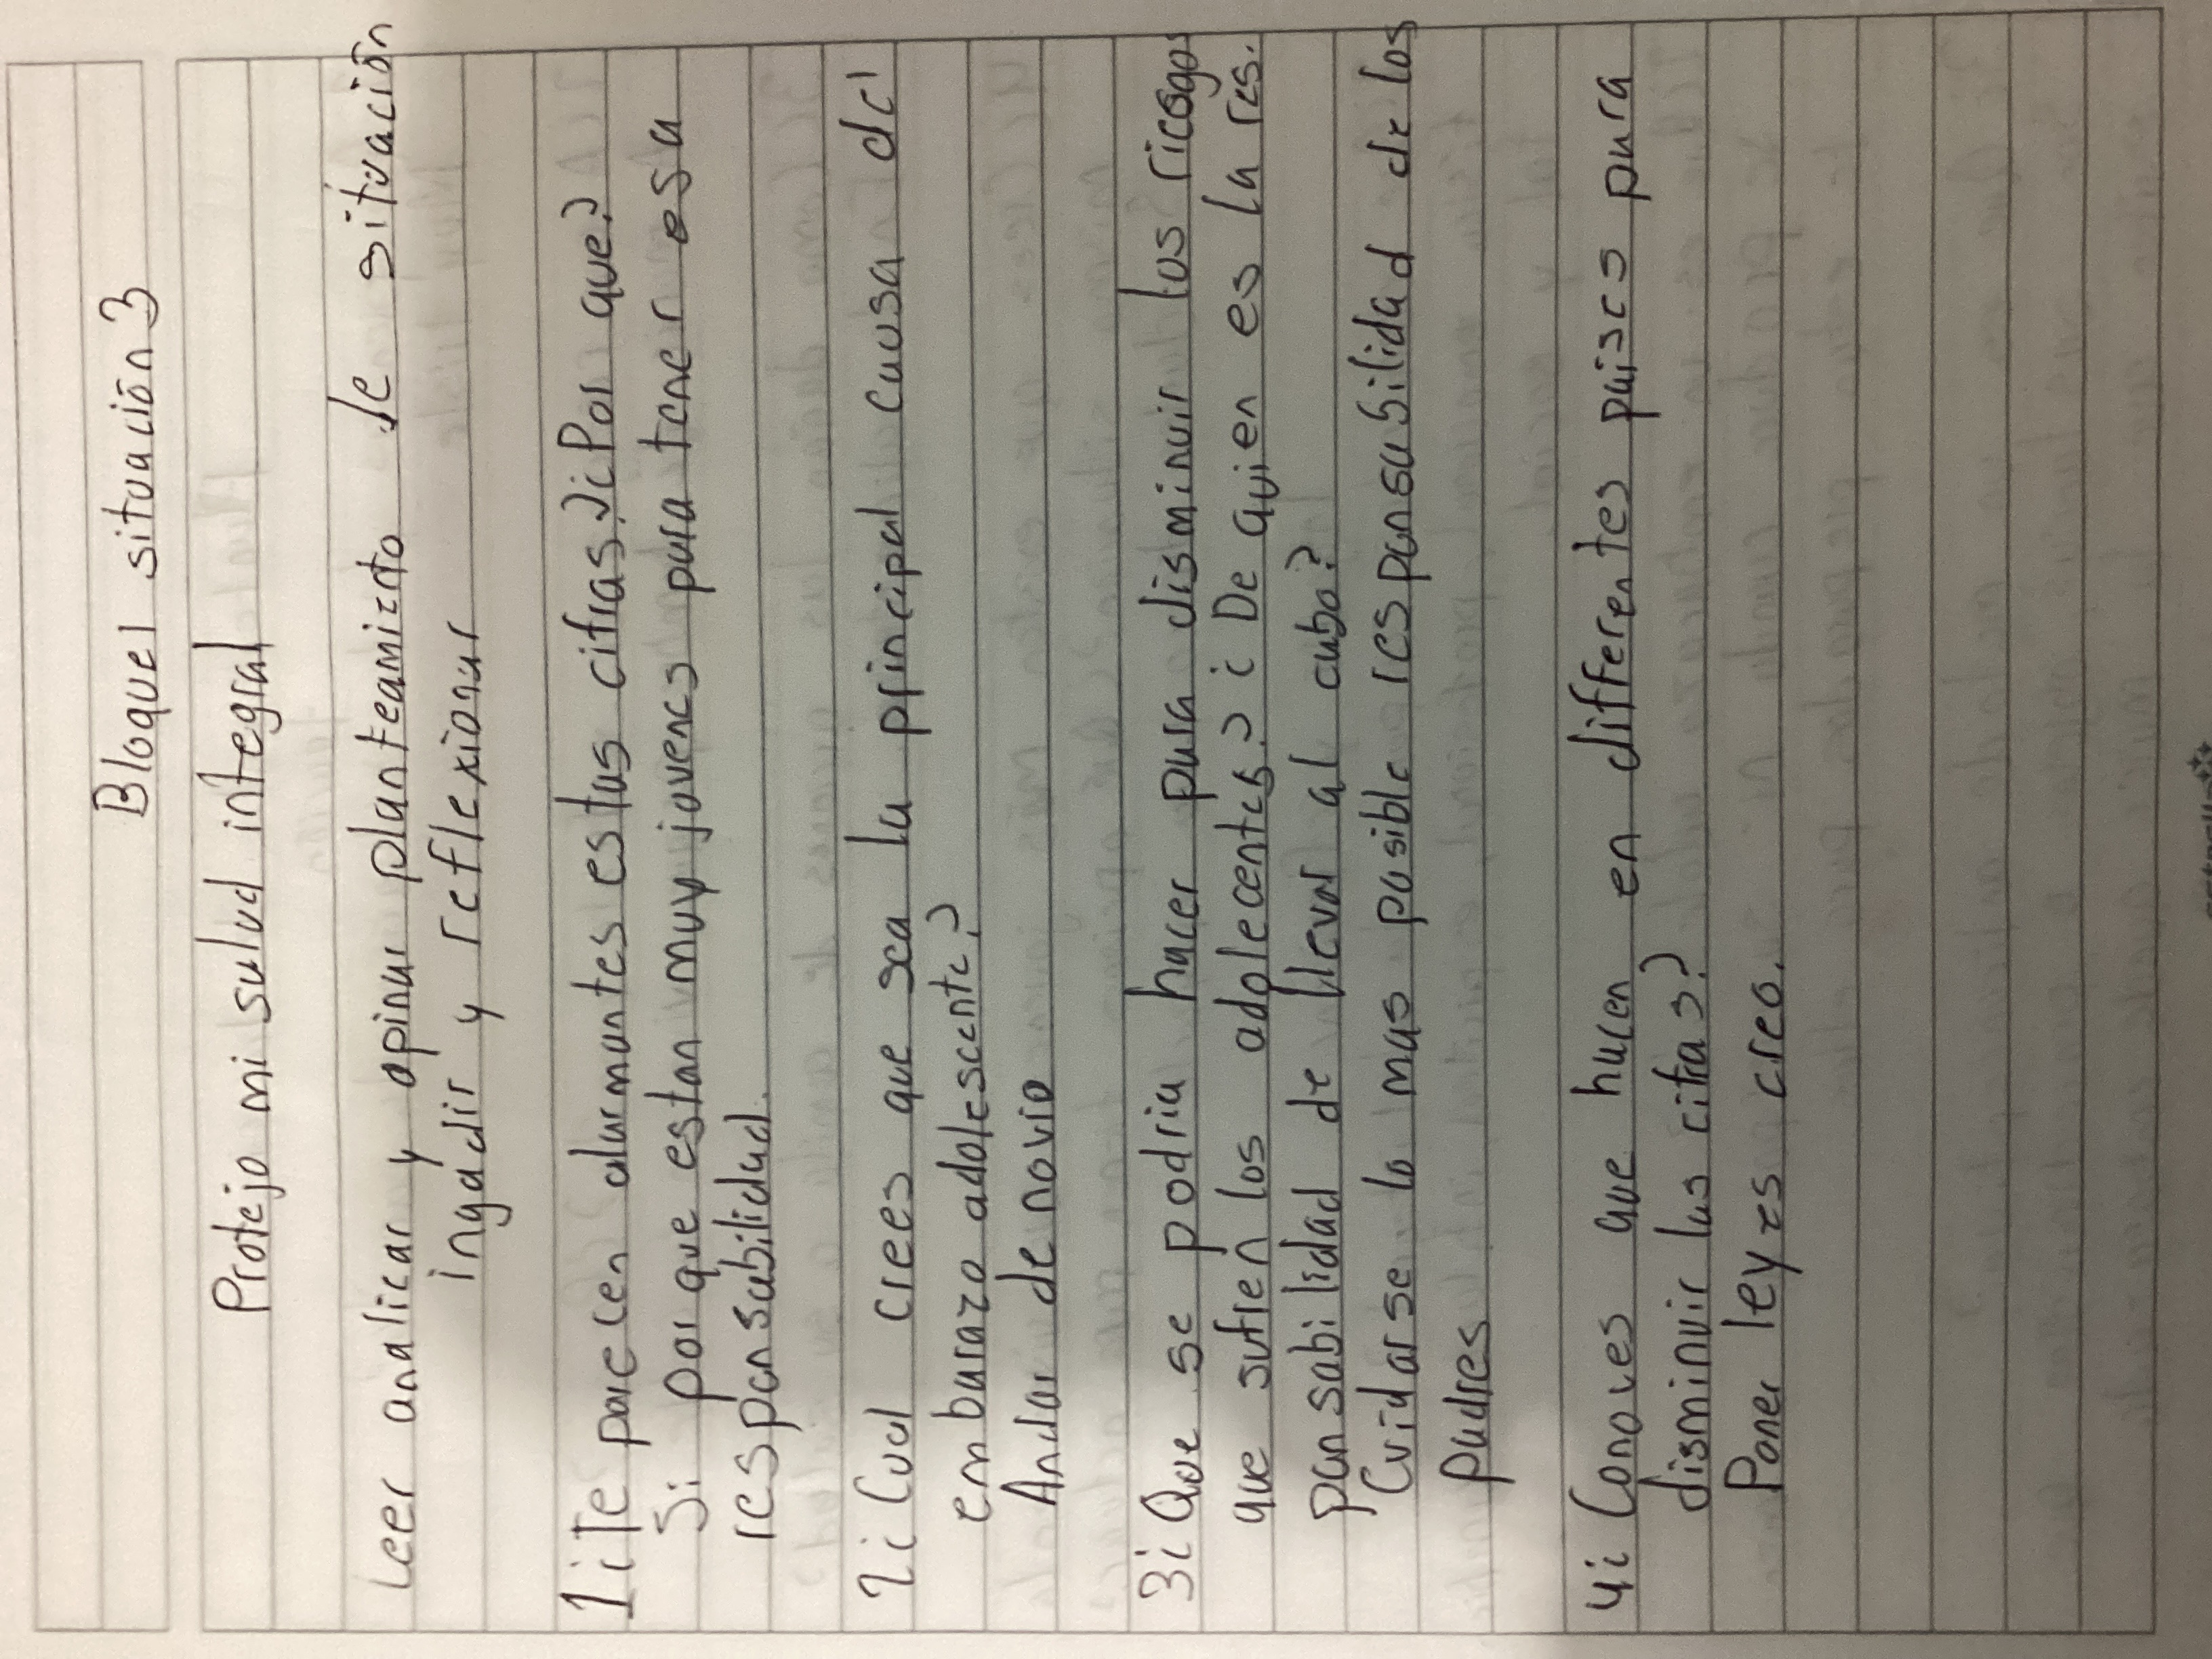 Bloque 1 situación 3
Protejo mi salud integral
Leer analicar y opinar planteamiento de situación
ingadir y reflexionar
1 ¿Te parecen alarmantes estas cifras? ¿Por que?
Si por que estan muy jovenes para tener esa
responsabilidad.
2 ¿Cual crees que sea la principal causa del
embarazo adolescente?
Andar de novio
3 ¿Que se podria hacer para disminuir los ricogos
que sufren los adolecentes? ¿De quien es la res.
ponsabilidad de llevar al cabo?
Cuidarse lo mas posible responsabilidad de los
padres
4 ¿Conoves que hacen en differentes paises para
disminuir las cifras?
Poner leyes creo.